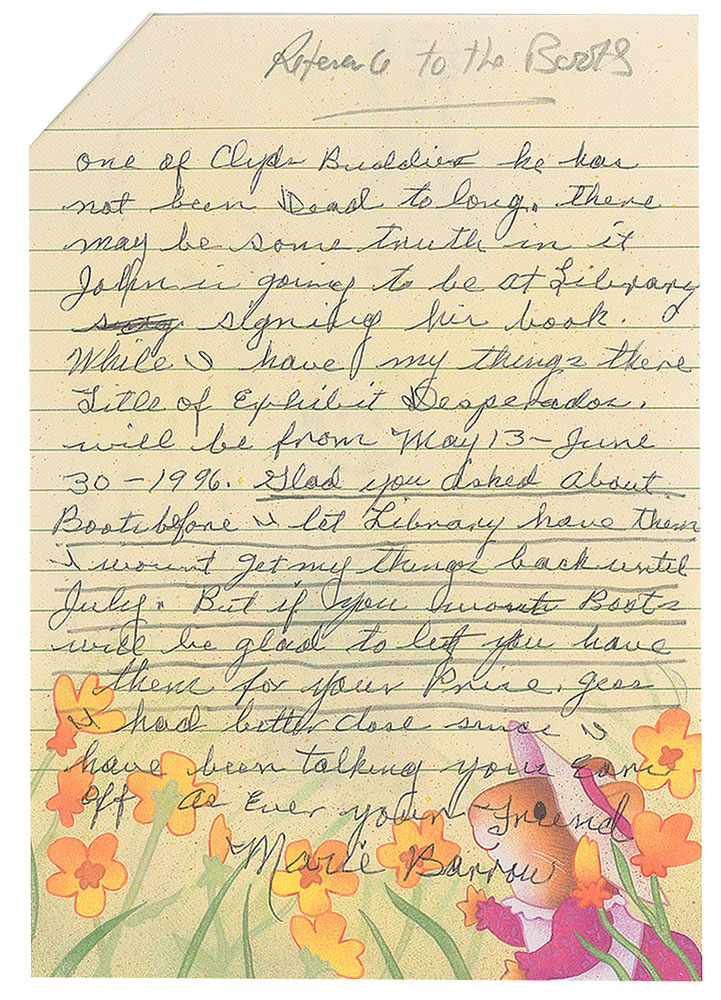 Referance to the Boots
one of Clyde Buddies he has
not been Dead to long. there
may be some truth in it
John is going to be at Library
signing his book.
While I have my things there
Title of Exhibit Desperados.
will be from May 13 - June
30 - 1996. Glad you asked about
Boots before I let Library have them
I wount get my things back until
July. But if you want Boots
will be glad to let you have
them for your Price. gess
I had better close since I
have been talking your Ears
off As Ever your Friend
Marie Barrow